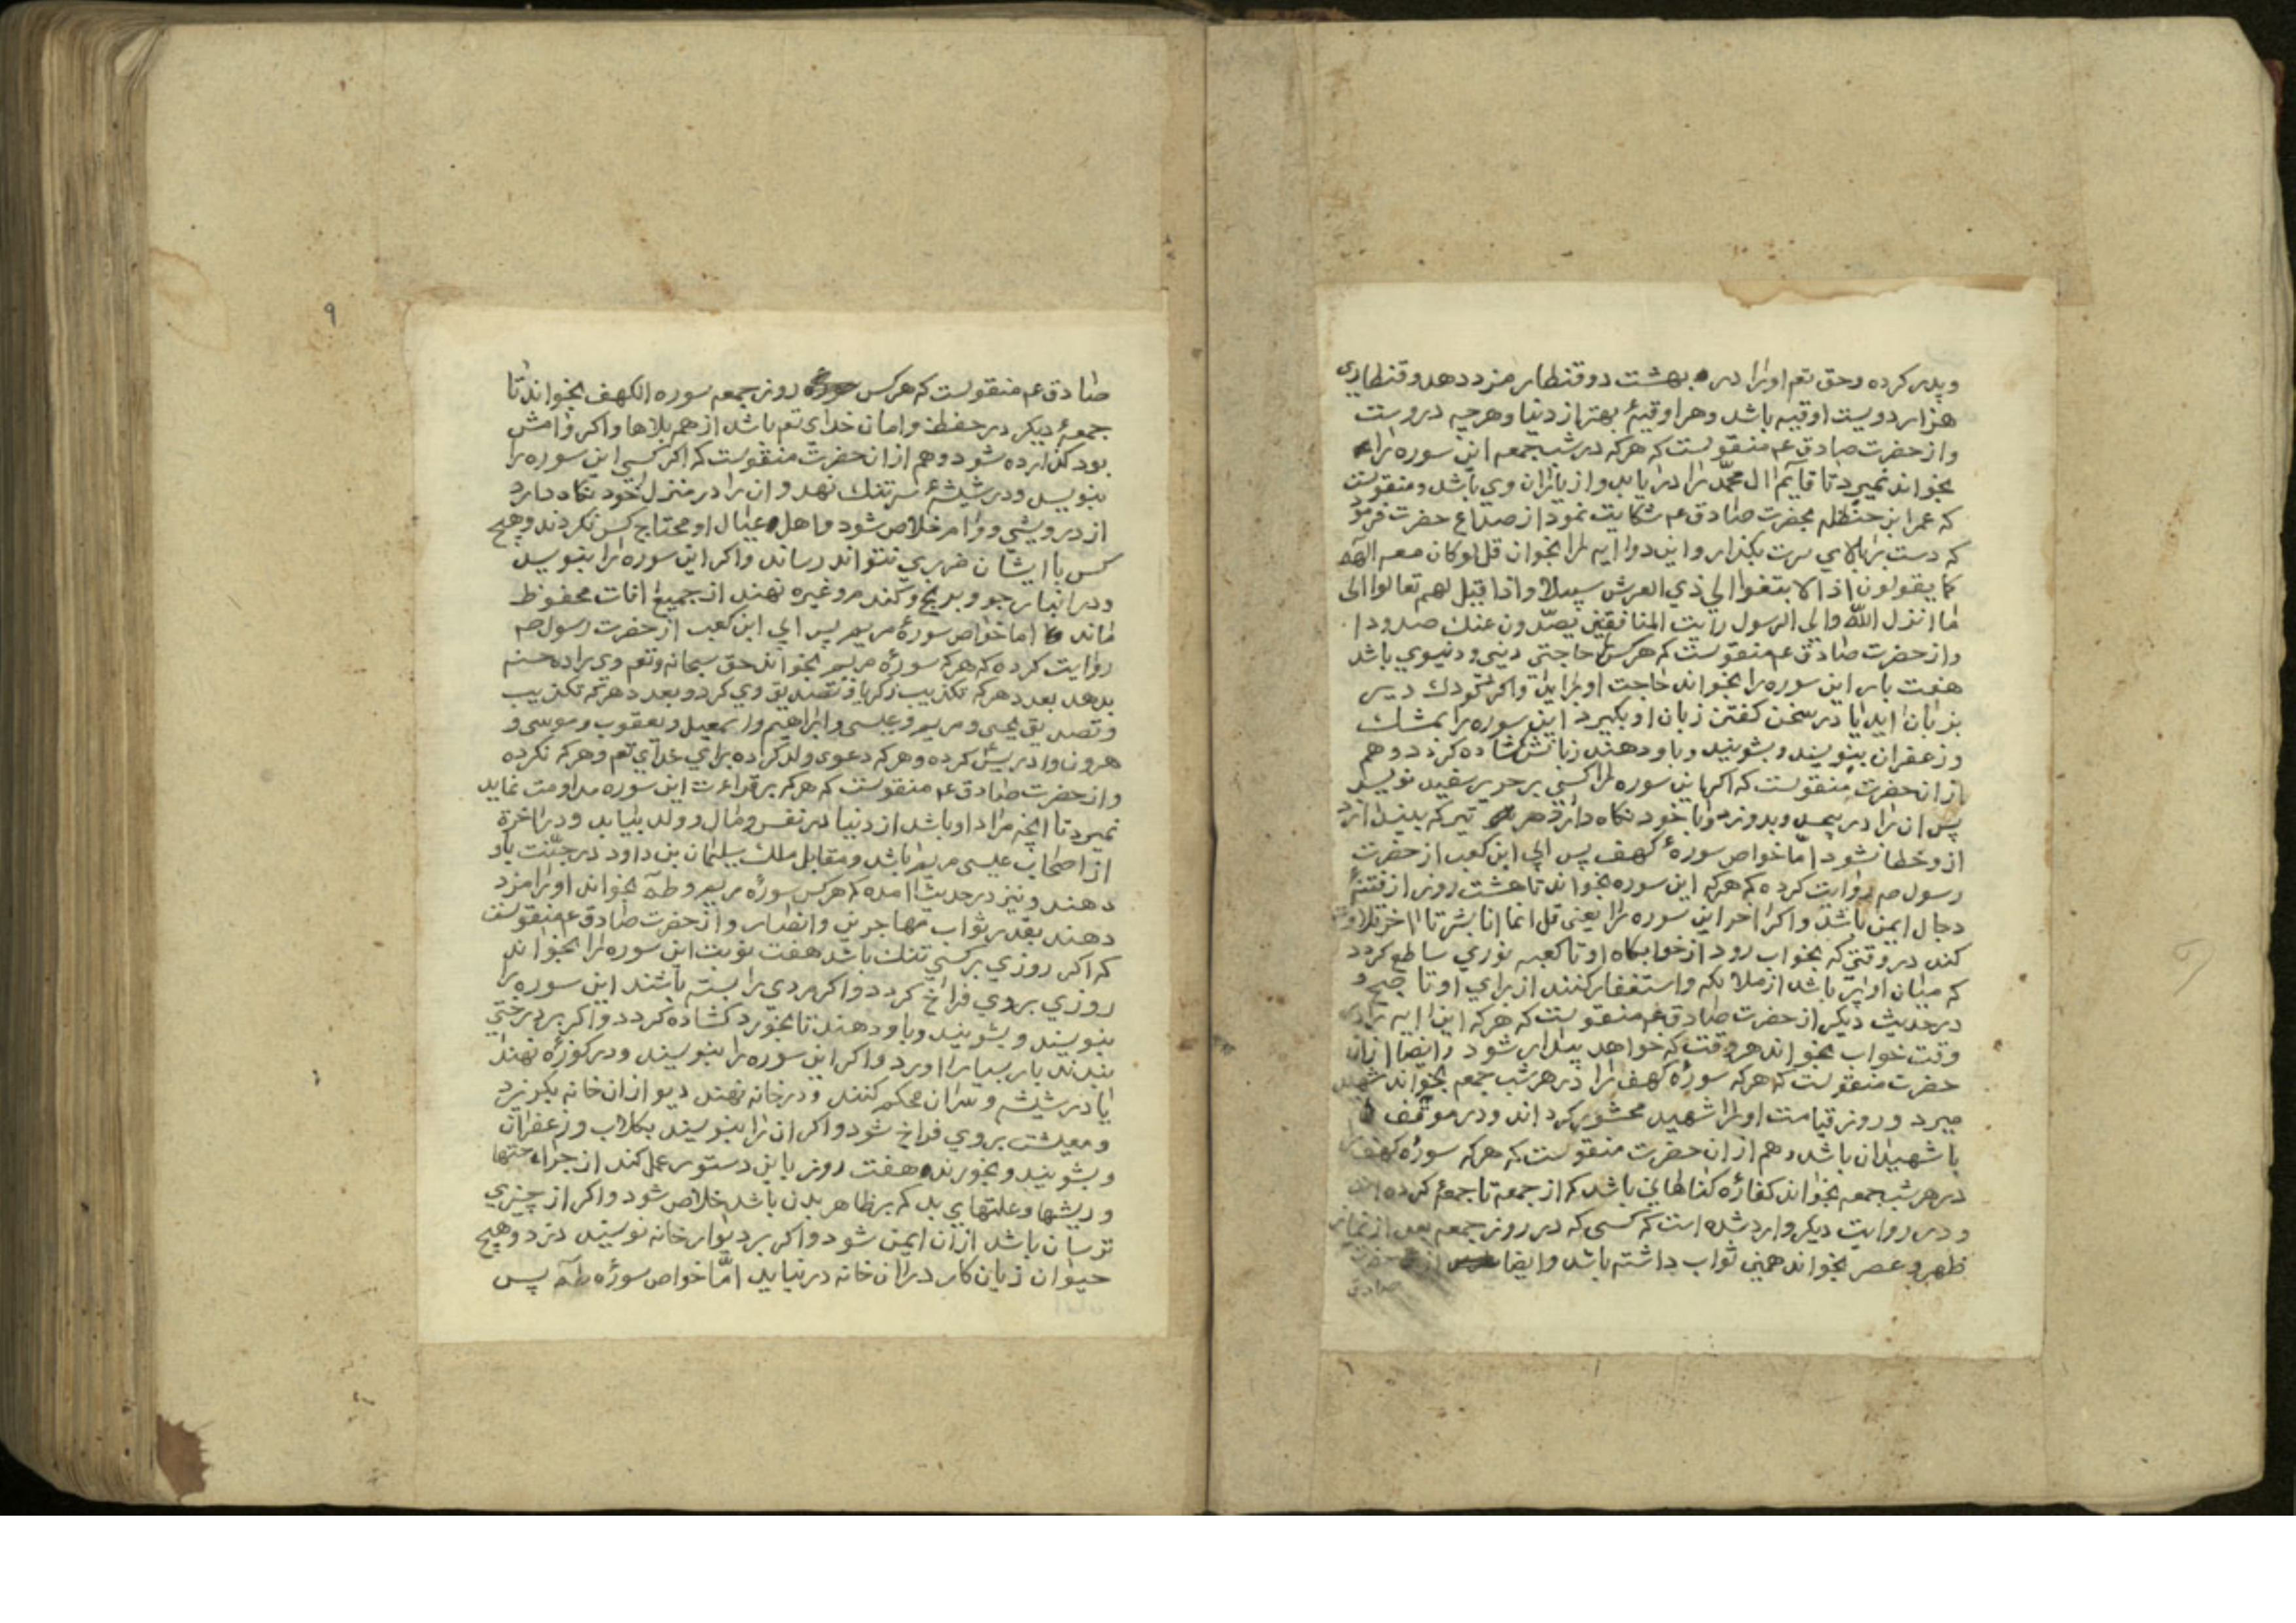 و پدر کرده و حق تعم او را در بهشت دو قنطار مزد دهد و قنطاری
هزار دویست اوقیه باشد و هر اوقیهٔ بهتر از دنیا و هر چه دروست
و از حضرت صادق عم منقولست که هر که در شب جمعه این سوره را
بخواند نمیرد تا قایم ال محمّد را دریابد و از یاران وی باشد و منقولست
که عمر ابن حنظله بحضرت صادق عم شکایت نمود از صداع حضرت فرمود
که دست بر بالای سرت بکذار و این دو ایه را بخوان قل لو کان معه الهة
کما یقولون اذا لابتغوا الی ذی العرش سبیلا و اذا قیل لهم تعالوا الی
ما انزل اللّه و الی الرسول رایت المنافقین یصدّون عنك صدودا
و از حضرت صادق عم منقولست که هر کس را حاجتی دینی و دنیوی باشد
هفت بار این سوره را بخواند حاجت او براید و اکر کودك دیر
بزبان اید یا در سخن کفتن زبان او بکیرد این سوره را بمشك
و زعفران بنویسند و بشویند و باو دهند زبانش کشاده کردد و هم
از ان حضرت منقولست که اکر این سوره را کسی بر حریر سفید نویسد
پس ان را در پیچد و بدوزد و با خود نکاه دارد هر تیر که بیندازد
ازو خطا نشود امّا خواص سورهٔ کهف پس ابی ابن کعب از حضرت
رسول صم روایت کرده که هر که این سوره بخواند تا هشت روز از فتنهٔ
دجال ایمن باشد و اکر اخر این سوره را یعنی قل انما انا بشر تا اخر تلاوت
کند در وقتی که بخواب رود از خوابکاه او تا کعبه نوری ساطع کردد
که میان او پر باشد از ملائکه و استغفار کنند از برای او تا صبح و
در حدیث دیکر از حضرت صادق عم منقولست که هر که این ایه را در
وقت خواب بخواند هر وقت که خواهد بیدار شود و ایضا از ان
حضرت منقولست که هر که سورهٔ کهف را در هر شب جمعه بخواند شهید
میرد و روز قیامت او را شهید محشور کرداند و در موقف
با شهیدان باشد و هم از ان حضرت منقولست که هر که سورهٔ کهف
در هر شب جمعه بخواند کفارهٔ کناهانی باشد که از جمعه تا جمعه کرده
و در روایت دیکر وارد شده است که کسی که در روز جمعه بعد از نماز
ظهر و عصر بخواند همین ثواب داشته باشد و ایضا از حضرت
صادق
۹
صادق عم منقولست که هر کس روز جمعه سوره الکهف بخواند تا
جمعهٔ دیکر در حفظ و امان خدای تعم باشد از همه بلاها و اکر وامش
بود کذارده شود و هم از ان حضرت منقولست که اکر کسی این سوره را
بنویسد و در شیشهٔ سر تنك نهد و ان را در منزل خود نکاه دارد
از درویشی و وام خلاص شود و اهل و عیال او محتاج کس نکردند و هیچ
کس با ایشان ضرری نتواند رساند و اکر این سوره را بنویسد
و در انبار جو و برنج و کندم و غیره نهند از جمیع افات محفوظ
ماند اما خواص سورهٔ مریم پس ابی ابن کعب از حضرت رسول صم
روایت کرده که هر که سورهٔ مریم بخواند حق سبحانه و تعم وی را ده حسنه
بدهد بعدد هر که تکذیب زکریا و تصدیق وی کرد و بعدد هر که تکذیب
و تصدیق یحیی و مریم و عیسی و ابراهیم و اسمعیل و یعقوب و موسی و
هرون و ادریس کرده و هر که دعوی ولد کرده برای خدای تعم و هر که نکرده
و از حضرت صادق عم منقولست که هر که بر قراءت این سوره مداومت نماید
نمیرد تا انچه مراد او باشد از دنیا در نفس و مال و ولد بیابد و در اخرة
از اصحاب عیسی مریم باشد و مقابل ملك سلیمان بن داود در جنّت باو
دهند و نیز در حدیث امده که هر کس سورهٔ مریم و طه بخواند او را مزد
دهند بقدر ثواب مهاجرین و انصار و از حضرت صادق عم منقولست
که اکر روزی بر کسی تنك باشد هفت نوبت این سوره را بخواند
روزی بروی فراخ کردد و اکر مردی را بسته باشند این سوره را
بنویسند و بشویند و باو دهند تا بخورد کشاده کردد و اکر بر درختی
بندند بار بسیار اورد و اکر این سوره را بنویسند و در کوزهٔ نهند
یا در شیشه و سر ان محکم کنند و در خانه نهند دیو از ان خانه بکریزد
و معیشت بروی فراخ شود و اکر ان را بنویسند بکلاب و زعفران
و بشویند و بخورند و هفت روز باین دستور عمل کند از جراحتها
و ریشها و علتهای بد که بر ظاهر بدن باشد خلاص شود و اکر از چیزی
ترسان باشد از ان ایمن شود و اکر بر دیوار خانه نویسد دزد و هیچ
حیوان زیان کار در ان خانه در نیاید امّا خواص سورهٔ طه پس